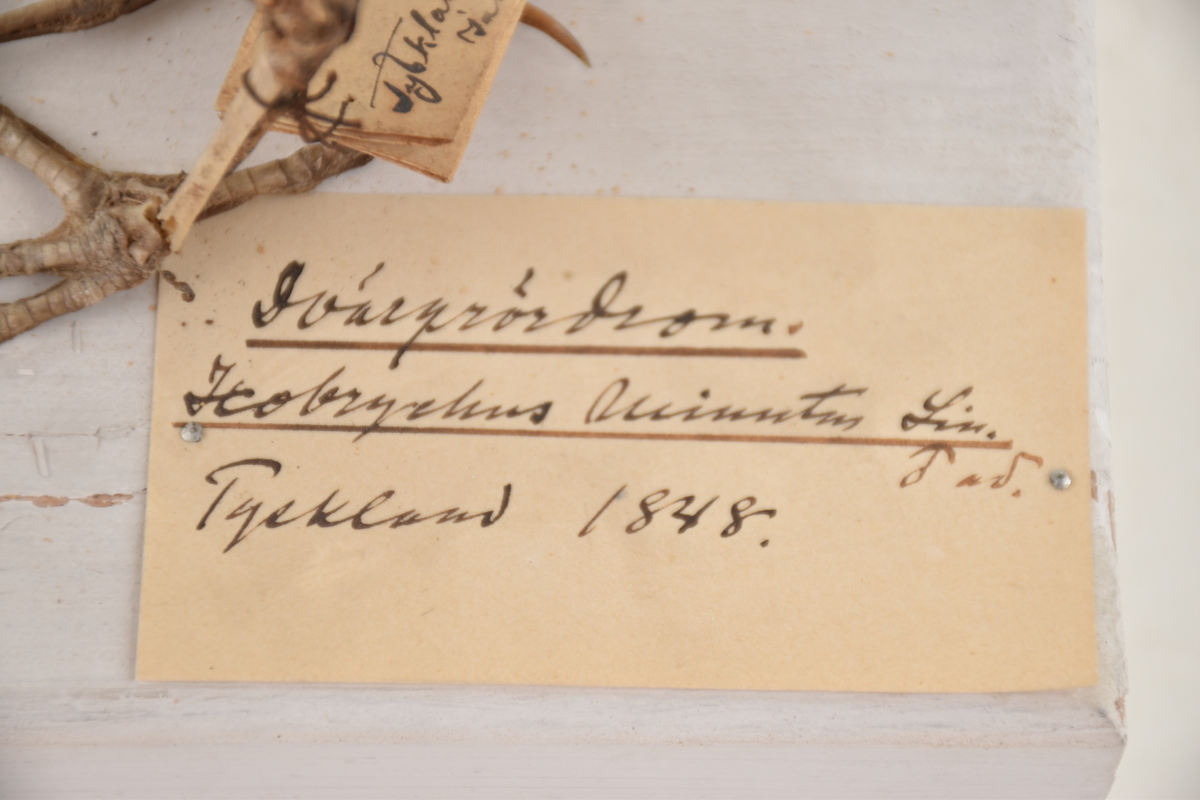 Tyskla
Dvärgrördrom.
Ixobrychus Minutus Lin.
ad.
Tyskland 1848.